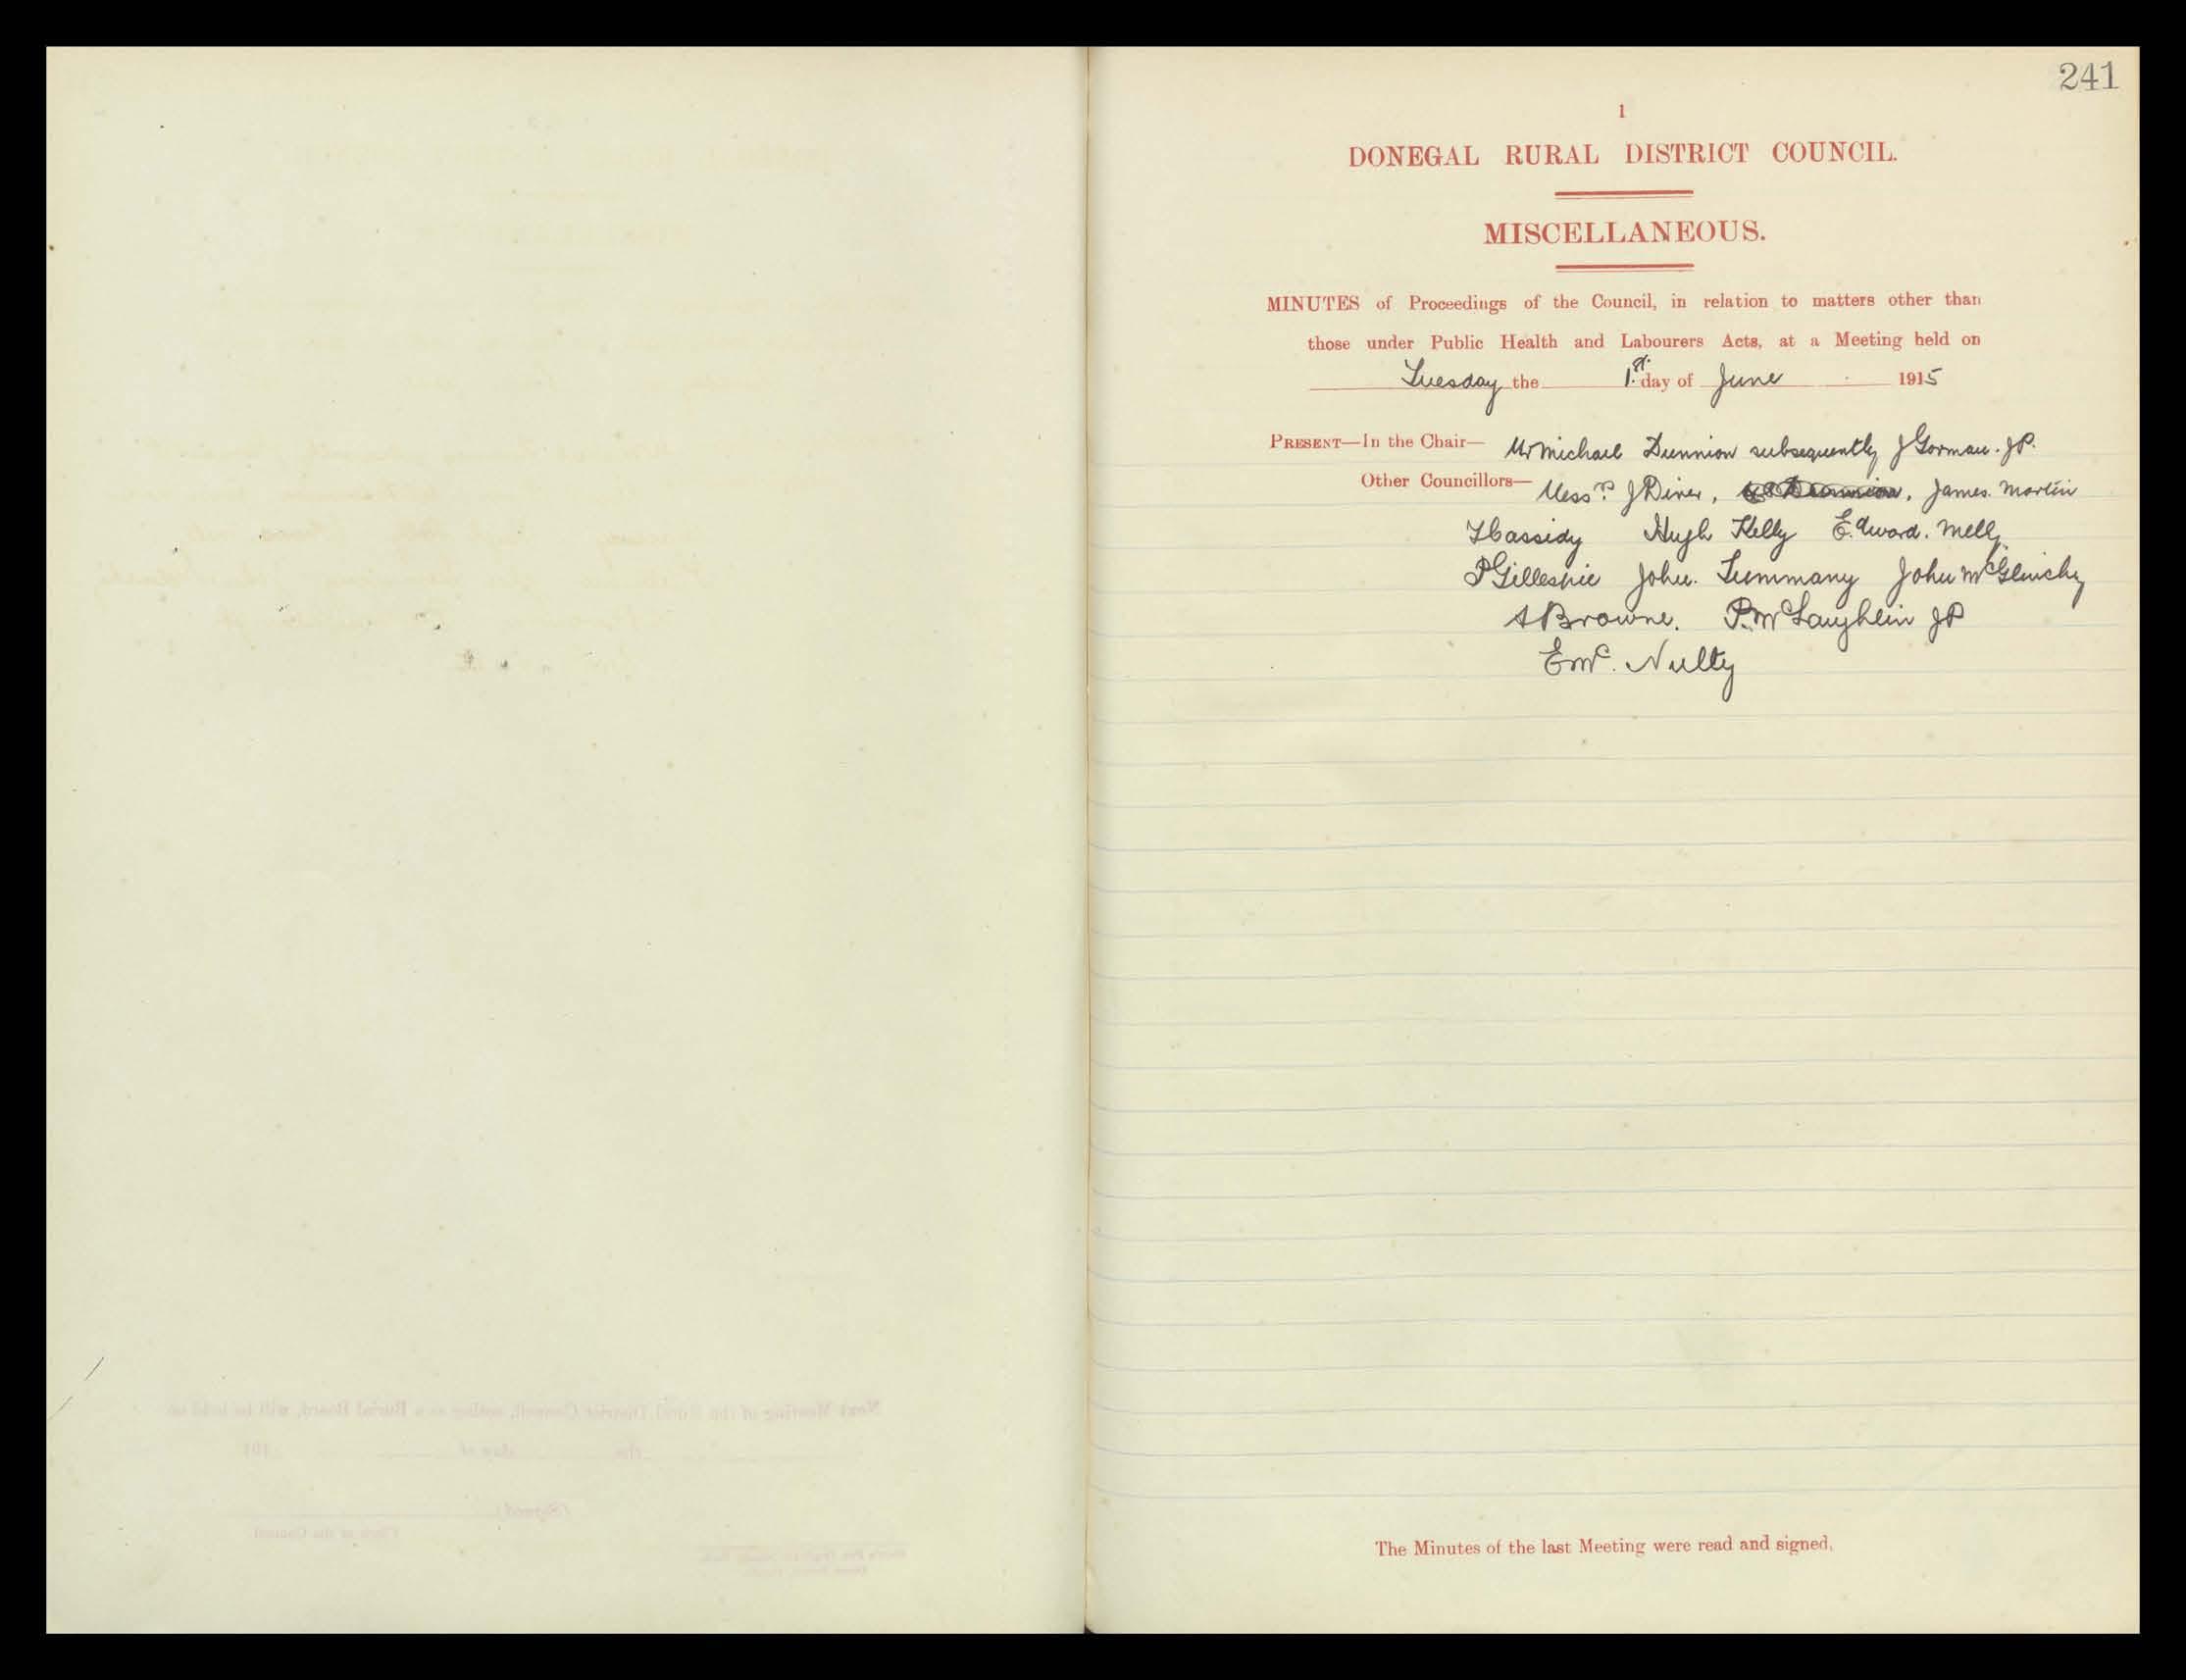 241
1
DONEGAL RURAL DISTRICT COUNCIL.
MISCELLANEOUS.
MINUTES of Proceedings of the Council, in relation to matters other than
those under Public Health and Labourers Acts, at a Meeting held on
Tuesday the 1st. day of June 1915
PRESENT—In the Chair— Mr Michael Dunnion subsequently J Gorman. JP.
Other Councillors— Messrs. J Diver, James. Martin
Cassidy Hugh Kelly Edward. Melly
P Gillespie John. Timmany John McGlinchy
A Browne. P. McLaughlin JP
E Mc. Nulty
The Minutes of the last Meeting were read and signed.